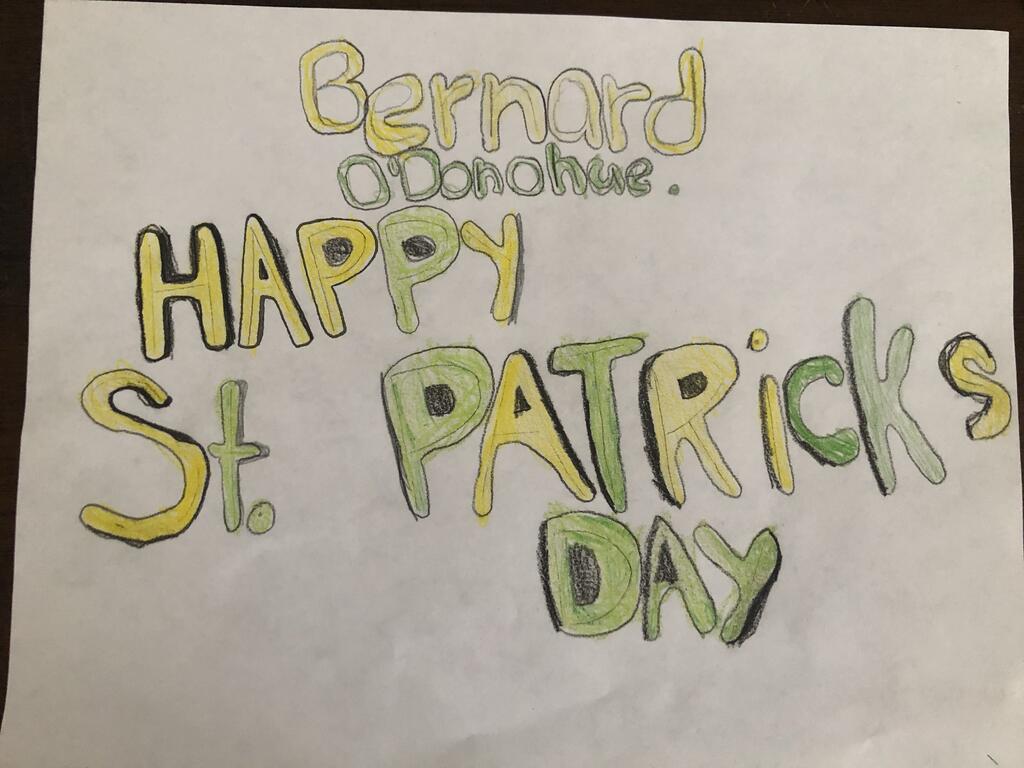 Bernard
O'Donohue.
HAPPY
St. PATRicks
DAY